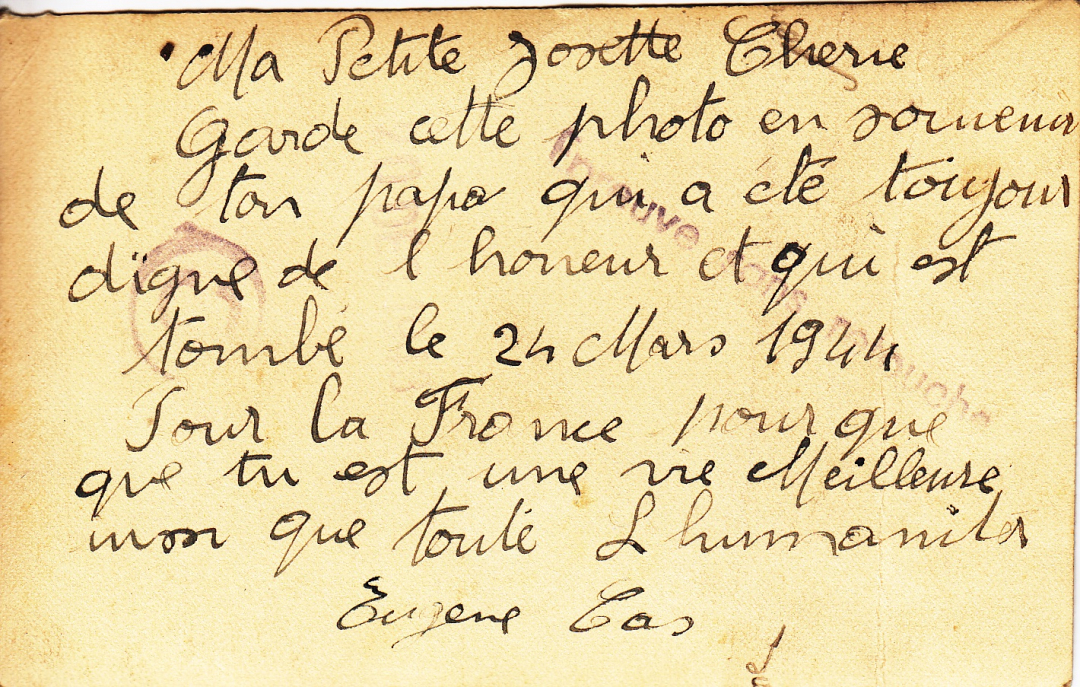 Ma Petite Josette Cherie
Garde cette photo en souvenir
de ton papa qui a été toujour
digne de l honneur et qui est
tombé le 24 Mars 1944
Pour la France pourque
que tu est une vie Meilleure
que toute L humanité
Eugene Cas